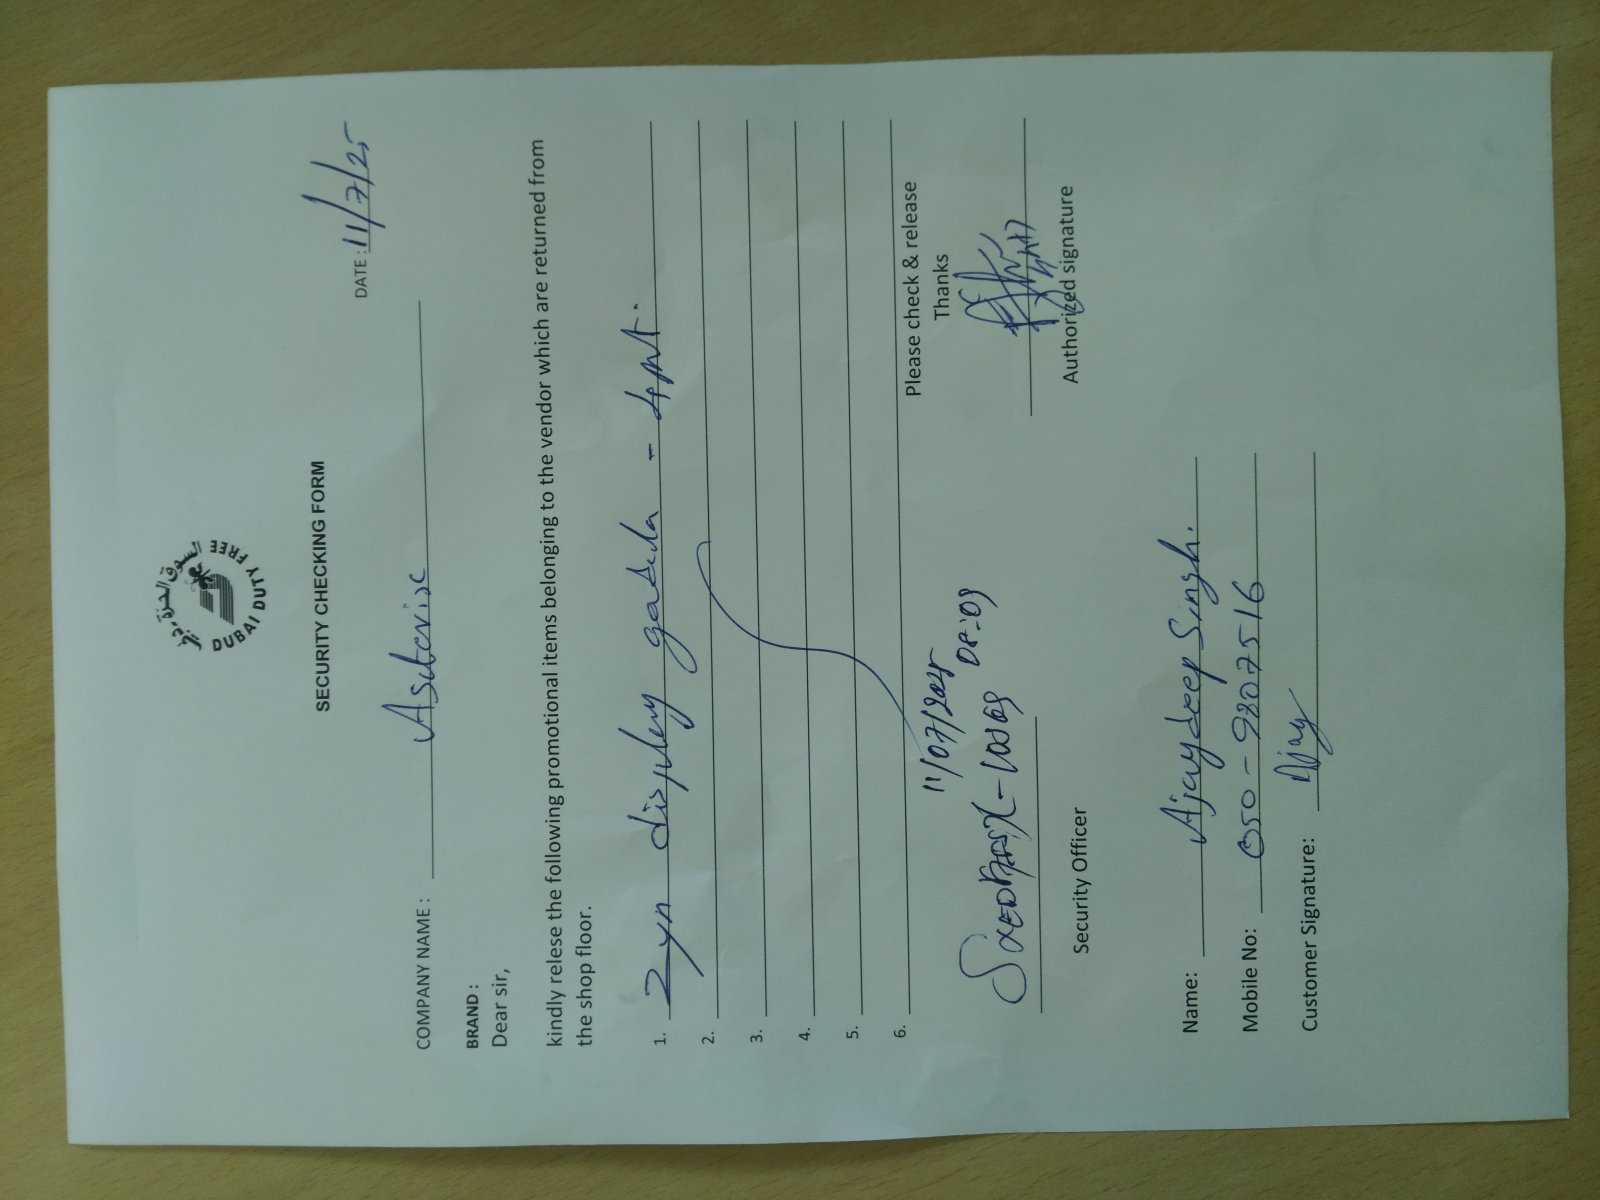 السوق الحرة دبي
DUBAI DUTY FREE
SECURITY CHECKING FORM
DATE : 11/7/25
COMPANY NAME : Asterisc
BRAND :
Dear sir,
kindly relese the following promotional items belonging to the vendor which are returned from
the shop floor.
1. Zyn display
2.
3.
4.
5.
6.
Please check & release
Thanks
11/07/2025
08:09
Security Officer
Authorized signature
Name: Ajaydeep Singh.
Mobile No: 050-9807516
Customer Signature: Ajay